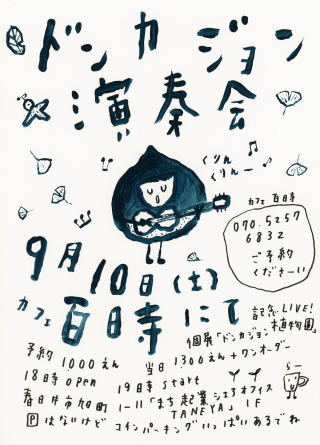 ドンカジョン
演奏会
くりん
くりんー
カフェ 百時
070.5257
6832
ご予約
くださーい
9月10日(土)
カフェ 百日寺にて
記念LIVE!
個展「ドンカジョン植物園」
予約 1000えん 当日 1300えん+ワンオーダー
18時 open 19時 start
春日井市旭町 1-11「まち起業シェアオフィス
TANEYA」1F
Pはないけど コインパーキングいっぱいあるでね